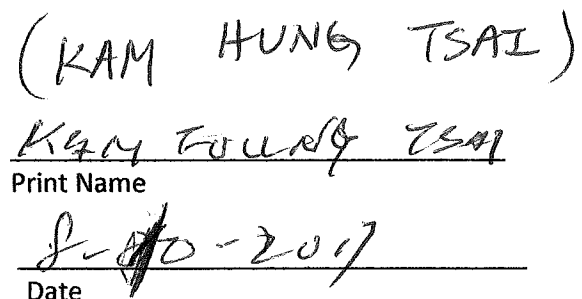 (KAM HUNG TSAI)
KAM FOUNG TSAI
Print Name
8-10-2017
Date